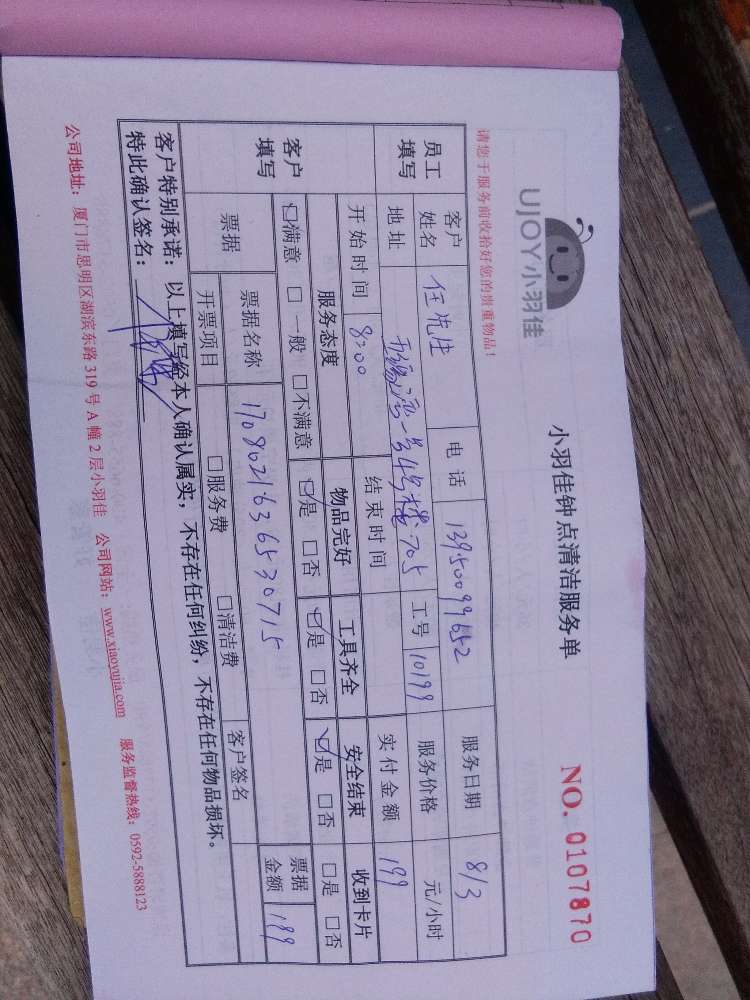 UJOY小羽佳
小羽佳钟点清洁服务单
NO. 0107870
请您于服务前收拾好您的贵重物品！
员工填写 客户姓名 任先生 电话 13950099652 服务日期 8/3
地址 一号4号楼705 工号 10199 服务价格 元/小时
开始时间 8:00 结束时间 实付金额 199
客户填写 服务态度 物品完好 工具齐全 安全结束 收到卡片
☑满意 □一般 □不满意 ☑是 □否 ☑是 □否 ☑是 □否 □是 □否
票据 票据名称 1708021636530715 票据金额 199
开票项目 □服务费 □清洁费 客户签名
客户特别承诺：以上填写经本人确认属实，不存在任何纠纷，不存在任何物品损坏。
特此确认签名：
公司地址：厦门市思明区湖滨东路 319 号 A 幢 2 层小羽佳 公司网站：www.xiaoyujia.com 服务监督热线：0592-5888123